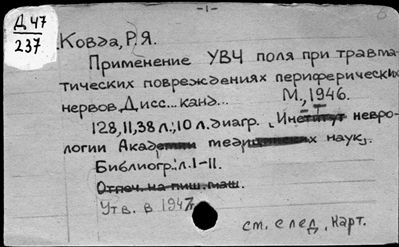 -1-
Д 47
237
Ковда, Р.Я.
Применение УВЧ поля при травма-
тических повреждениях периферических
нервов. Дисс... канд... М., 1946.
128, 11, 38 л.; 10 л. диагр. (Институт невро-
логии Академии медицинских наук).
Библиогр.: л. I-II.
Отпеч. на пиш. маш.
Утв. в 1947г
см. след. карт.